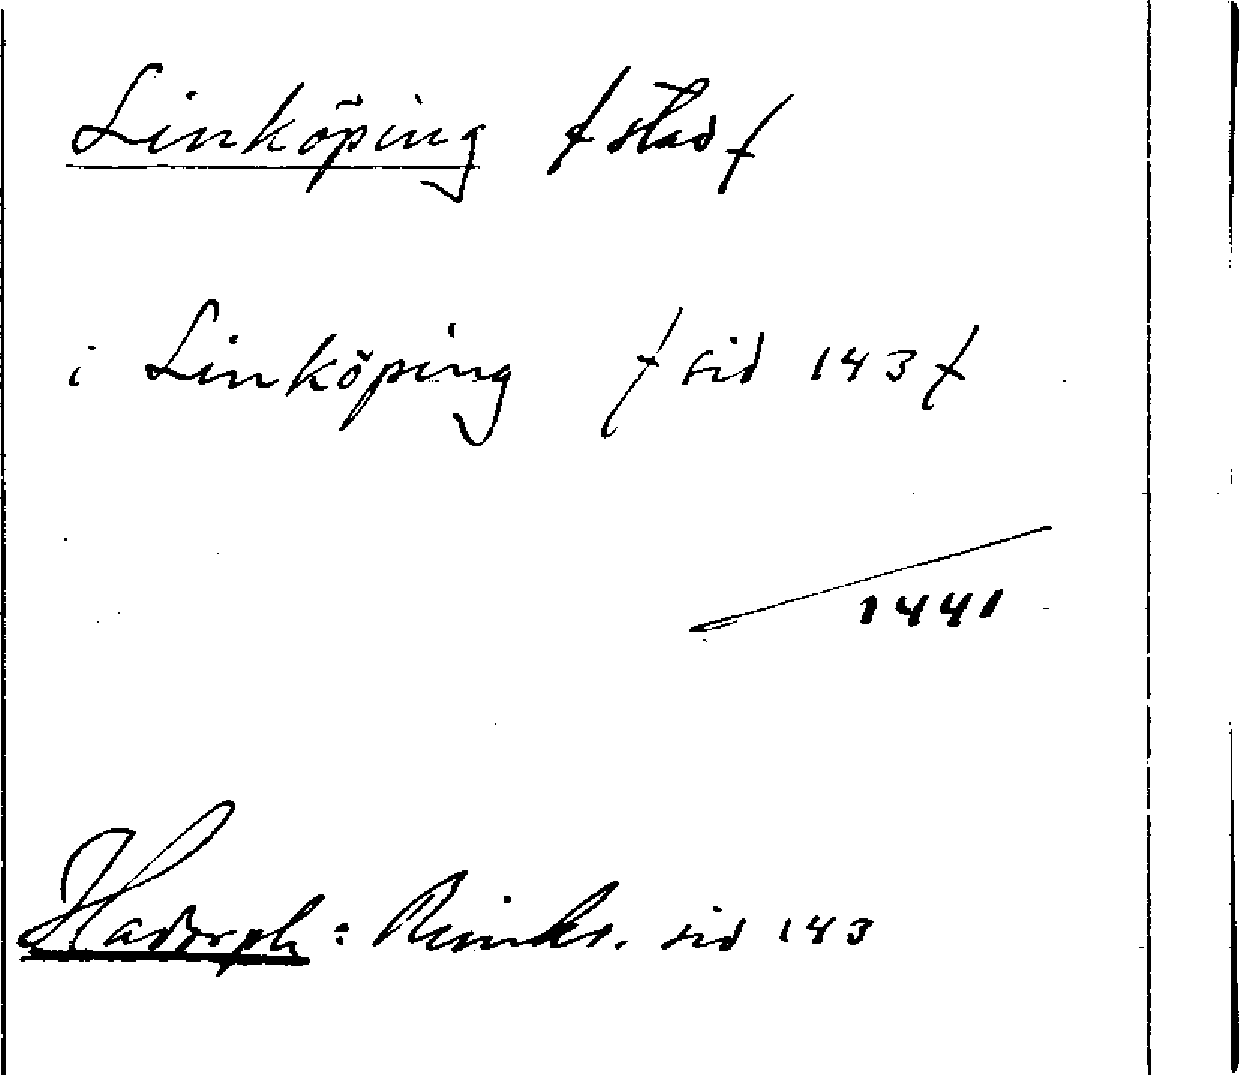 Linköping /stad/
i Linköping /sid 143/
1441
Hadorph: Rimkr. sid 143